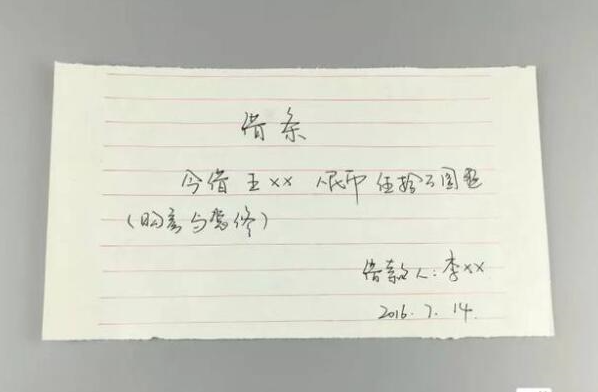 借条
今借王×× 人民币伍拾万圆整
(购房与装修)
借款人:李××
2016.7.14.